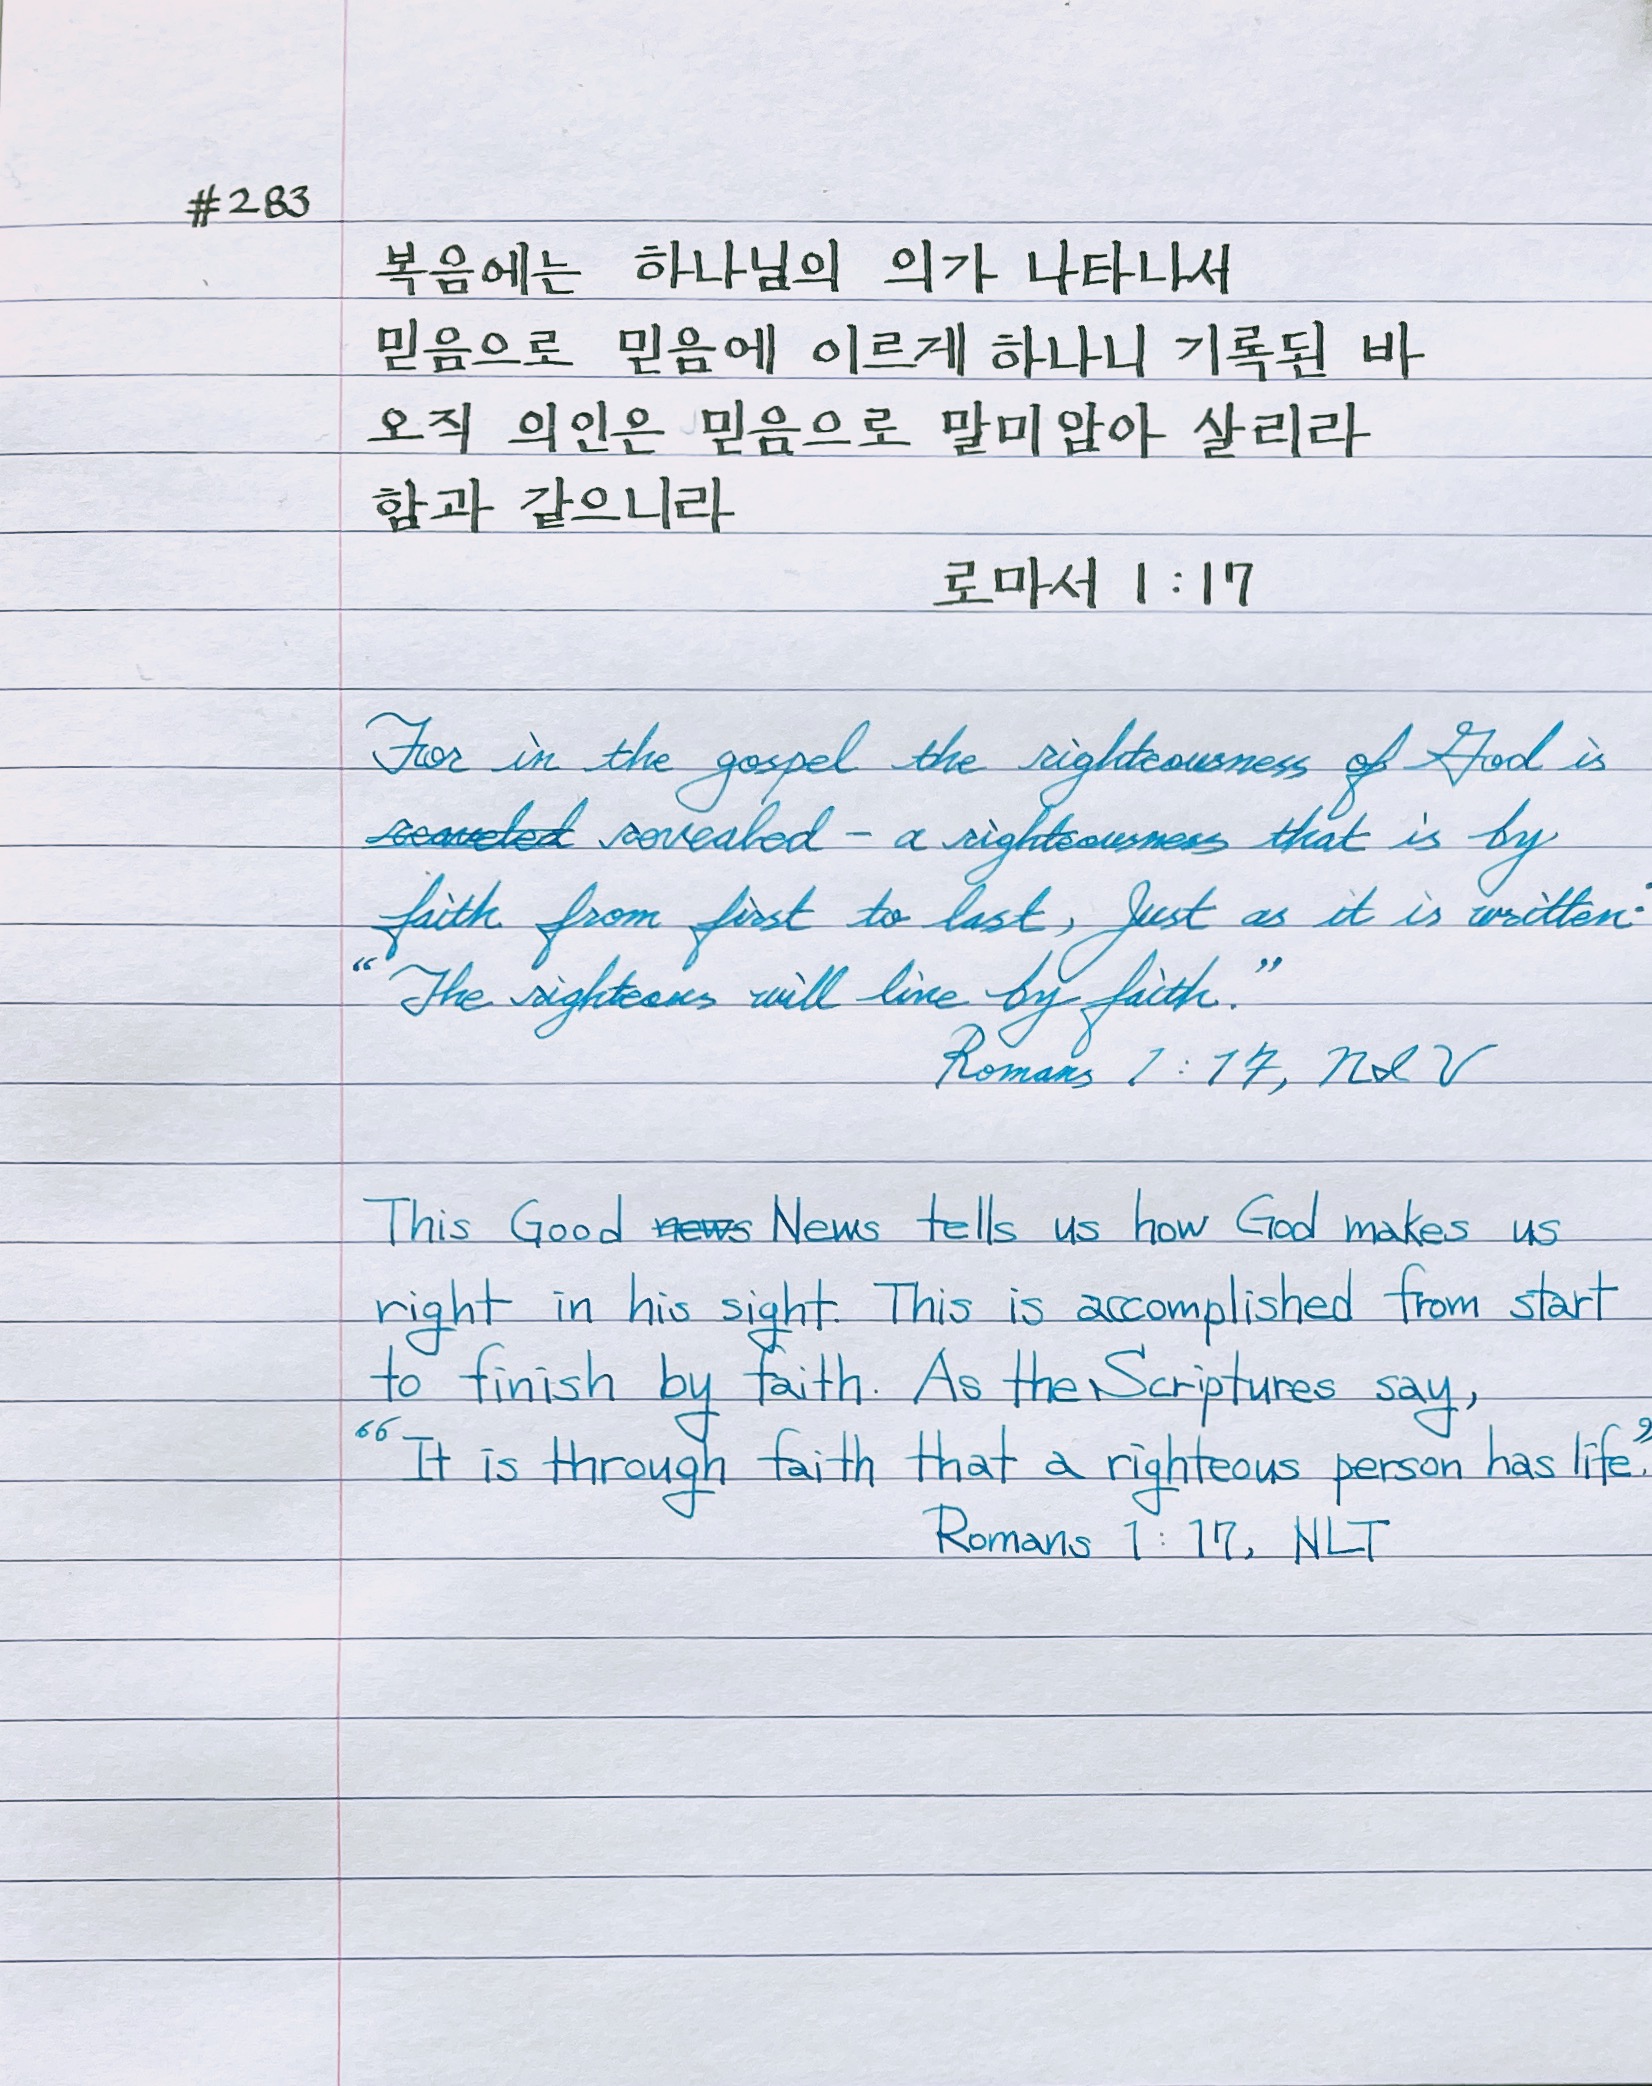 #283
복음에는 하나님의 의가 나타나서
믿음으로 믿음에 이르게 하나니 기록된 바
오직 의인은 믿음으로 말미암아 살리라
함과 같으니라
로마서 1:17
For in the gospel the righteousness of God is
revealed - a righteousness that is by
faith from first to last, Just as it is written:
“The righteous will live by faith.”
Romans 1:17, NIV
This Good news News tells us how God makes us
right in his sight. This is accomplished from start
to finish by faith. As the Scriptures say,
“It is through faith that a righteous person has life.”
Romans 1:17, NLT